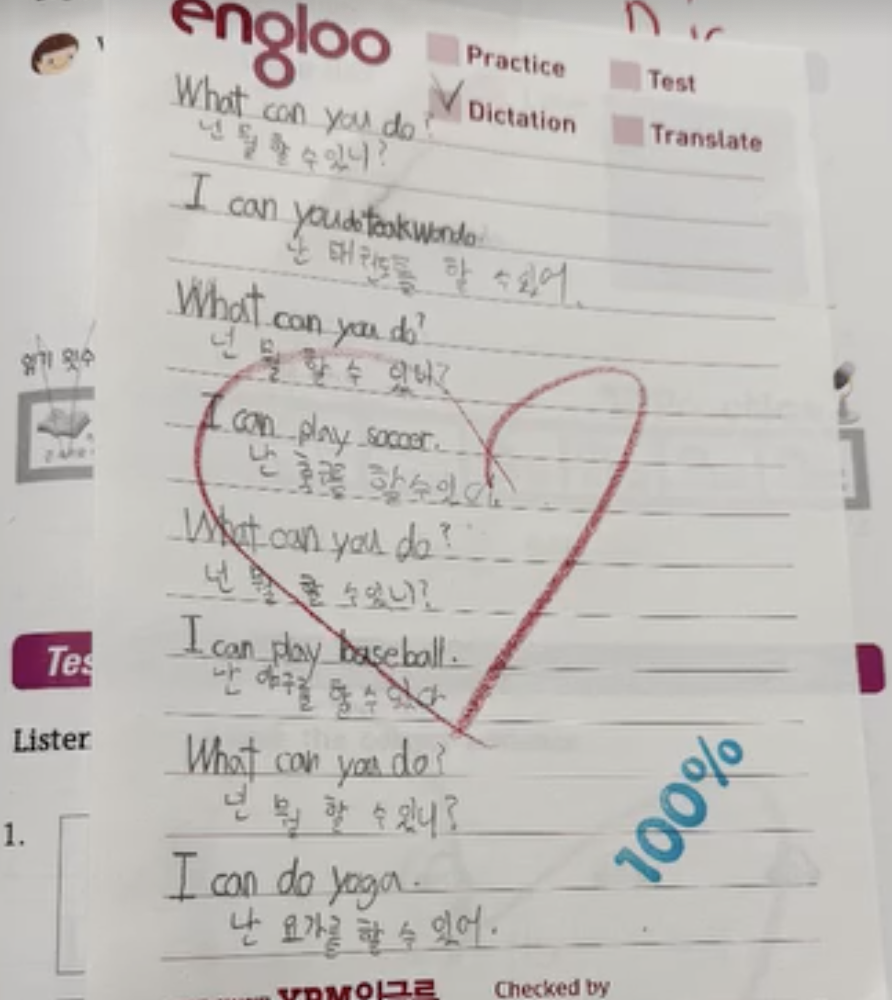 engloo
Practice
Test
Dictation
Translate
What can you do?
넌 뭘 할 수 있니?
I can youdotaekwondo.
난 태권도를 할 수 있어.
What can you do?
넌 뭘 할 수 있니?
I can play soccer.
난 축구를 할 수 있어.
What can you do?
넌 뭘 할 수 있니?
I can play baseball.
난 야구를 할 수 있다
What can you do?
넌 뭘 할 수 있니?
I can do yoga.
난 요가를 할 수 있어.
100%
YBM잉글루
Checked by
읽기
Tes
Listen
1.